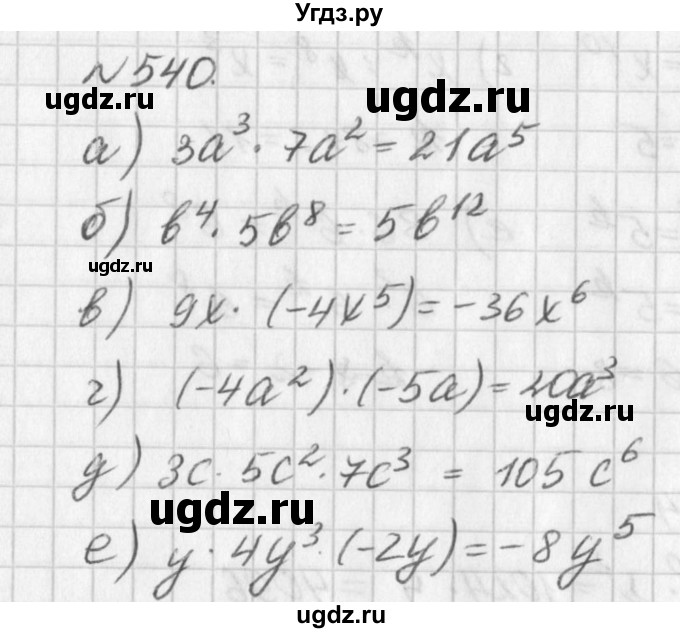 Угдз.ру
№540.
ugdz.ru ugdz.ru
а) 3a³ · 7a² = 21a⁵
б) b⁴ · 5b⁸ = 5b¹²
ugdz.ru
в) 9x · (-4x⁵) = -36x⁶
г) (-4a²) · (-5a) = 20a³
ugdz.ru
д) 3c · 5c² · 7c³ = 105c⁶
ugdz.ru
е) y · 4y³ · (-2y) = -8y⁵
ugdz.ru
ugdz.ru